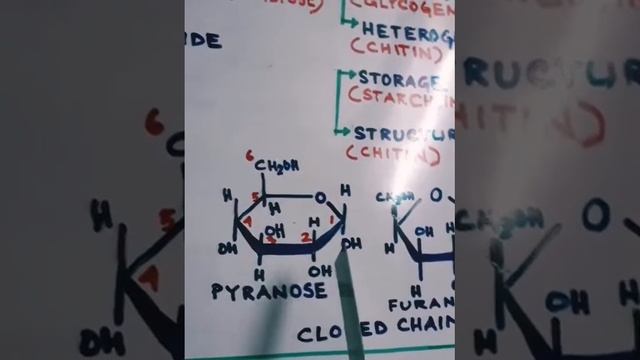 (GLYCOGEN
HETEROG
(CHITIN)
IDE
STORAGE
(STARCH
STRUCTUR
(CHITIN)
6
CH₂OH
H 5 O H
H
4 OH H 1
OH 3 2 OH
H OH
PYRANOSE
CH₂OH O
H OH H
H
FURAN
CLOSED CHAIN